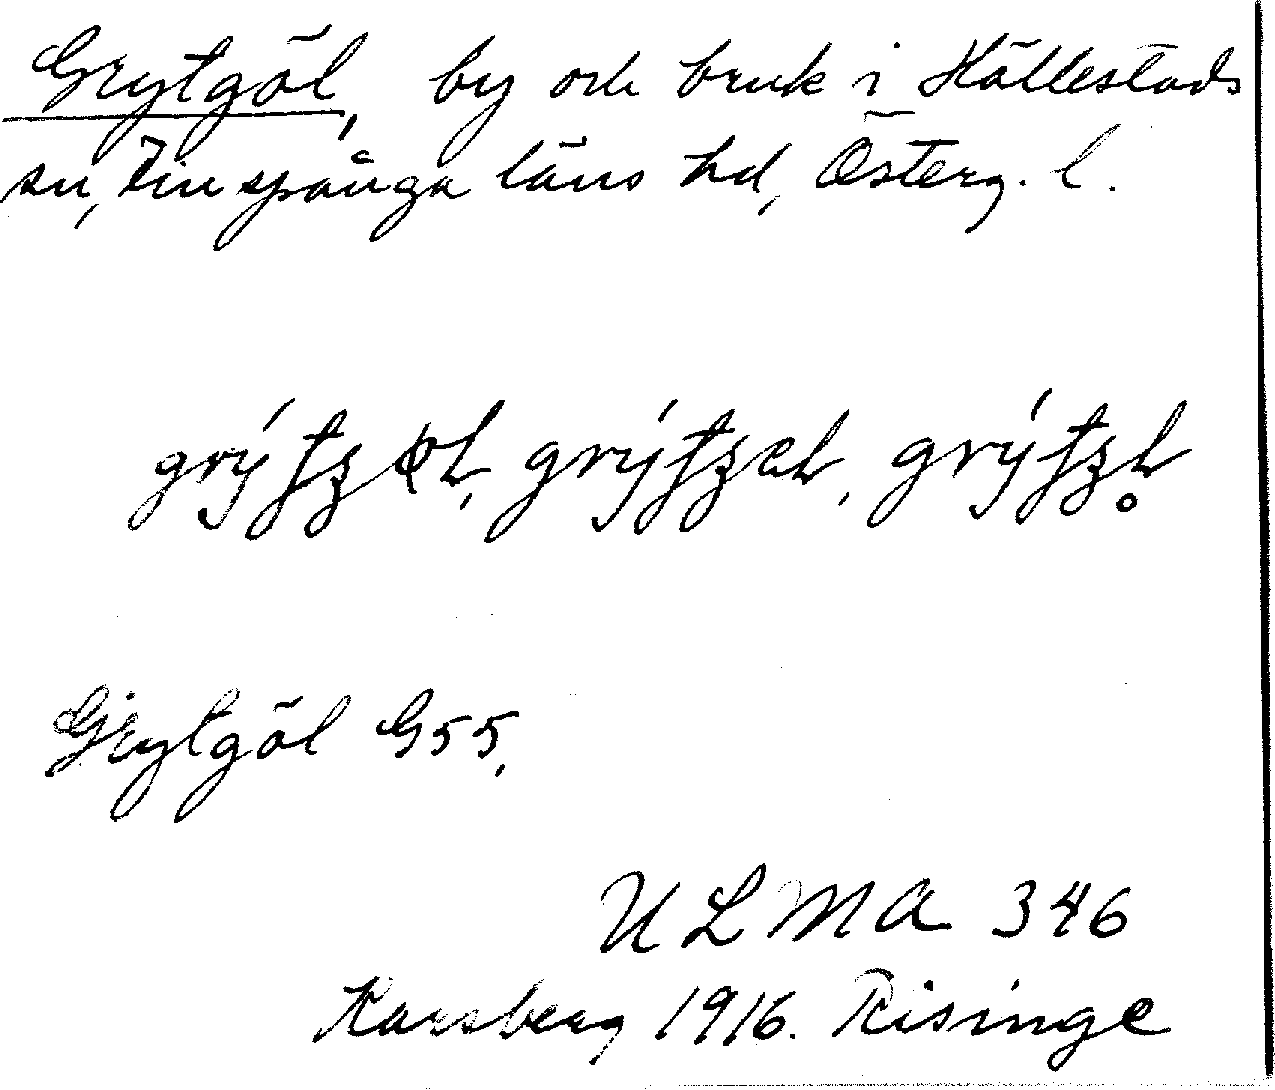 Grytgöl, by och bruk i Hällestads
sn, Finspånga läns hd, Österg. l.
Grytgöl G55,
ULMA 346
Karsberg 1916. Risinge